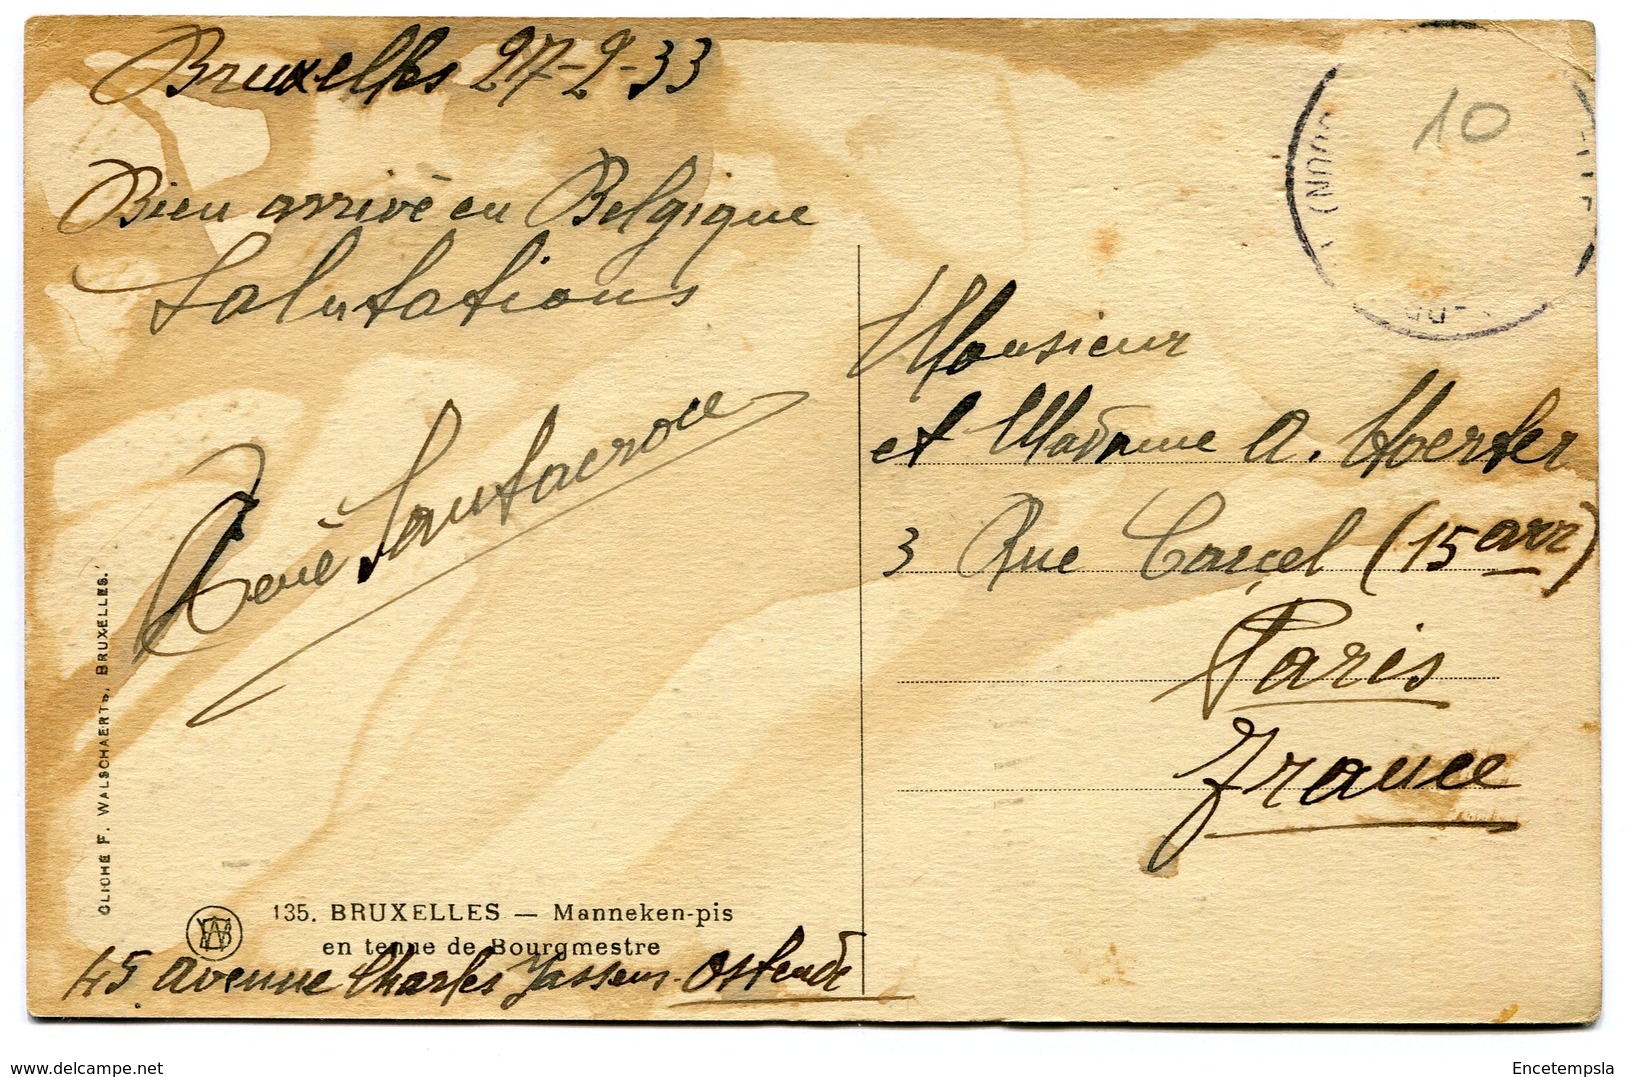 Bruxelles 27-2-33
Bien arrivé en Belgique
Salutations
René Santacroce
Monsieur
et Madame A. Hoerter
3 Rue Carcel (15 arr)
Paris
France
CLICHÉ F. WALSCHAERTS, BRUXELLES.
135. BRUXELLES — Manneken-pis
en tenue de Bourgmestre
45 Avenue Charles Janssens - Ostende
10
Delcampe.net
Encetempsla